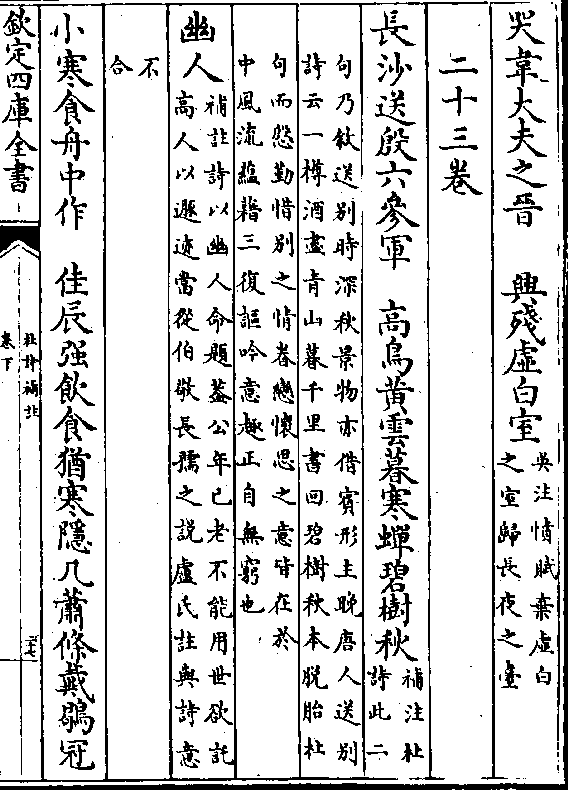 哭韋大夫之晉　興殘虛白室
吳注憤賦棄虛白
之室歸長夜之臺
二十三卷
長沙送殷六參軍　高鳥黃雲暮寒蟬碧樹秋
補注杜
詩此二
句乃敘送别時深秋景物亦借賓形主晚唐人送别
詩云一樽酒盡青山暮千里書回碧樹秋本脱胎杜
句而慇勤惜别之情眷戀懷思之意皆在於
中風流蘊藉三復謳吟意趣正自無窮也
幽人
補註詩以幽人命題蓋公年已老不能用世欲託
高人以遯迹當從伯敬長孺之説盧氏註與詩意
不
合
小寒食舟中作　佳辰强飲食猶寒隱几蕭條戴鶡冠
欽定四庫全書
杜詩補註
卷下